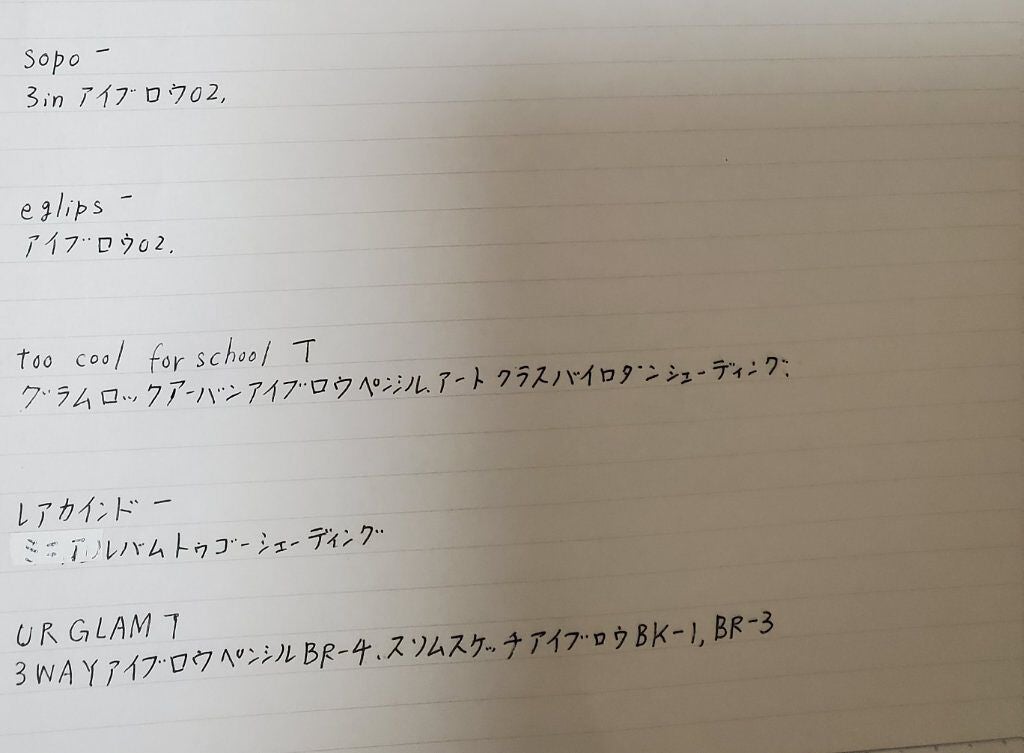 sopo ー
3in アイブロウ02,
eglips ー
アイブロウ02.
too cool for school T
グラムロックアーバンアイブロウペンシル、アートクラスバイロダンシェーディング、
レアカインド ー
ミニアルバムトゥゴーシェーディング
UR GLAM T
3WAYアイブロウペンシルBR-4、スリムスケッチアイブロウBK-1, BR-3